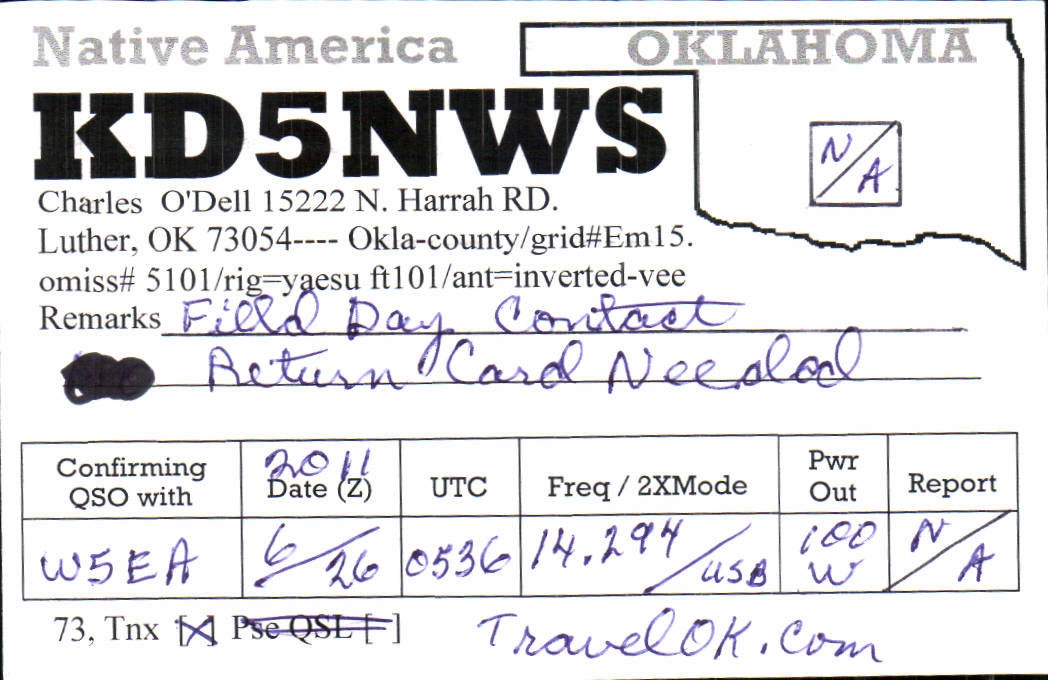 Native America OKLAHOMA
KD5NWS
N/A
Charles O'Dell 15222 N. Harrah RD.
Luther, OK 73054---- Okla-county/grid#Em15.
omiss# 5101/rig=yaesu ft101/ant=inverted-vee
Remarks Field Day Contact
Return Card Needed
Confirming QSO with 2011 Date (Z) UTC Freq / 2XMode Pwr Out Report
W5EA 6/26 0536 14.294/USB 100 W N/A
73, Tnx [X] Pse QSL [ ] TravelOK.com